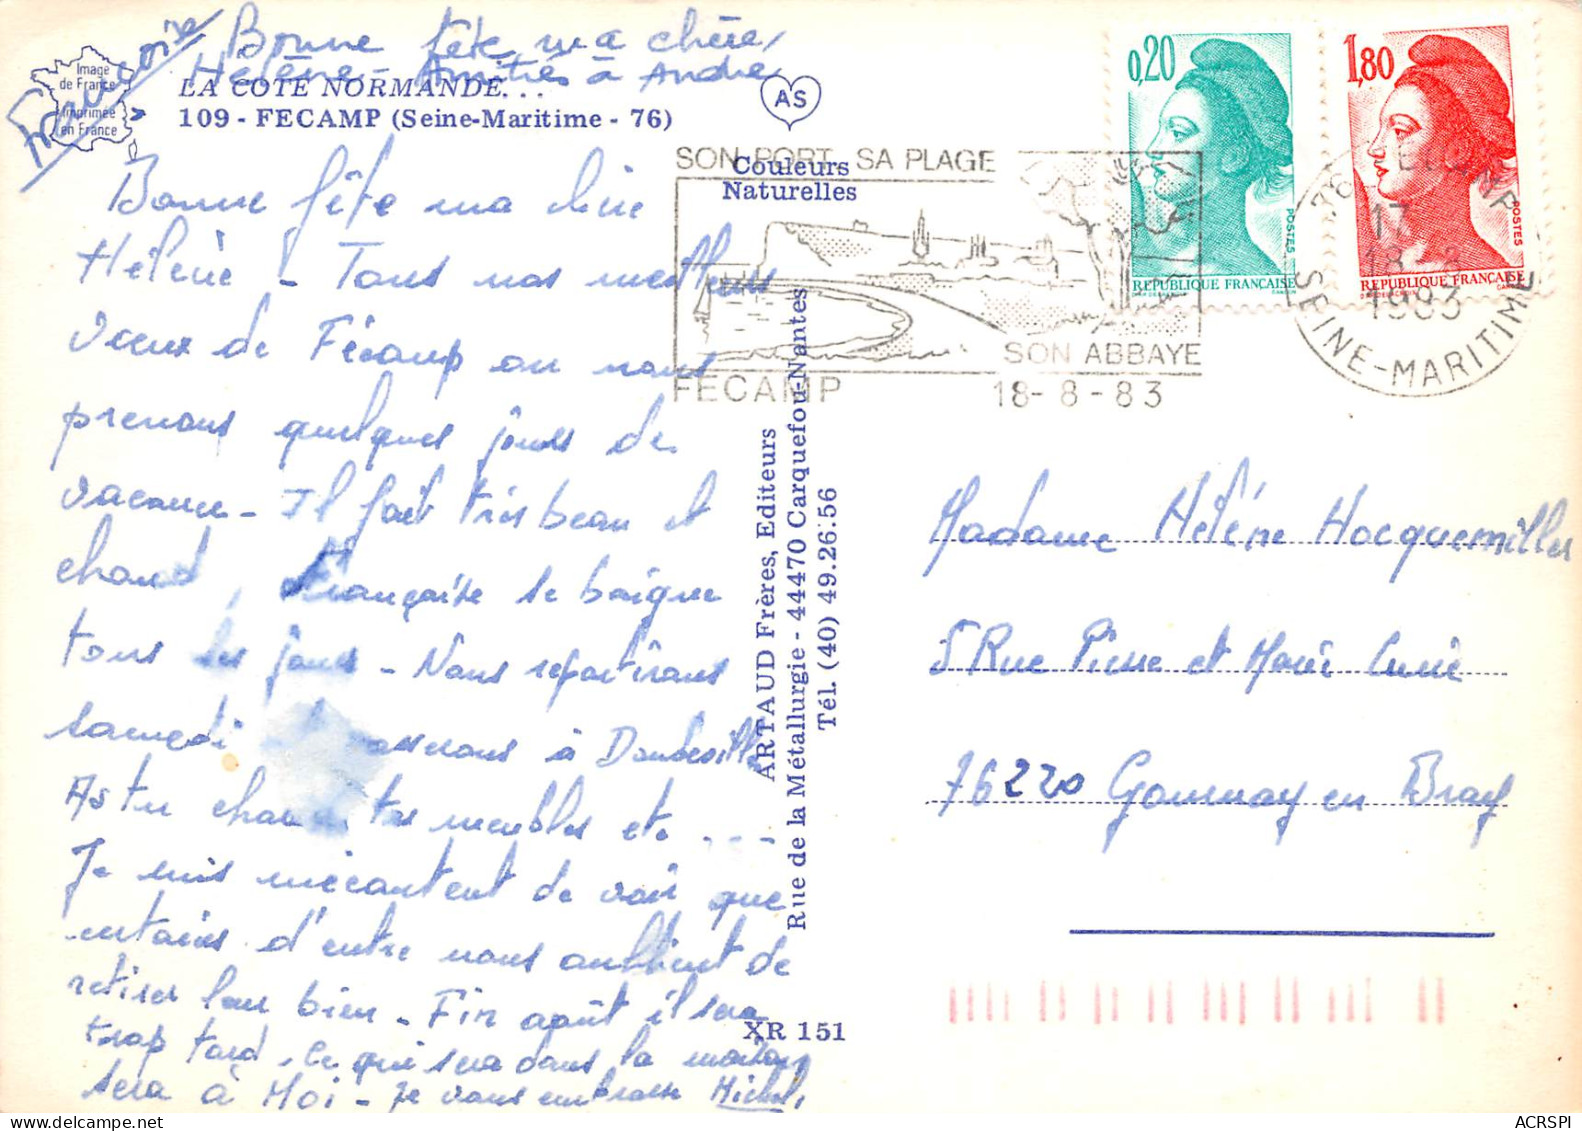 Françoise
Bonne fête ma chère
Hélène - Amitiés à André
Image
de France
Imprimée
en France
LA COTE NORMANDE...
109 - FECAMP (Seine-Maritime - 76)
AS
Couleurs
Naturelles
Bonne fête ma chère
Hélène - Tous nos meilleurs
voeux de Fécamp ou nous
prenons quelques jours de
vacance - Il fait très beau et
chaud, Françoise se baigne
tous les jours - Nous repartirons
samedi passerons à Doudeville
As tu tes meubles etc ....
Je suis mécontent de voir que
certains d'entre nous oublient de
retirer leur bien - Fin août il sera
trop tard, ce qui sera dans la maison
sera à Moi - Je vous embrasse Michel,
ARTAUD Frères, Editeurs
Rue de la Métallurgie - 44470 Carquefou-Nantes
Tél. (40) 49.26.56
XR 151
SON PORT SA PLAGE
SON ABBAYE
FECAMP 18-8-83
0,20
POSTES
REPUBLIQUE FRANÇAISE
1,80
POSTES
REPUBLIQUE FRANÇAISE
76 FECAMP
17
18-8
1983
SEINE-MARITIME
Madame Hélène Hocquemiller
5 Rue Pierre et Marie Curie
76220 Gournay en Bray
ACRSPI